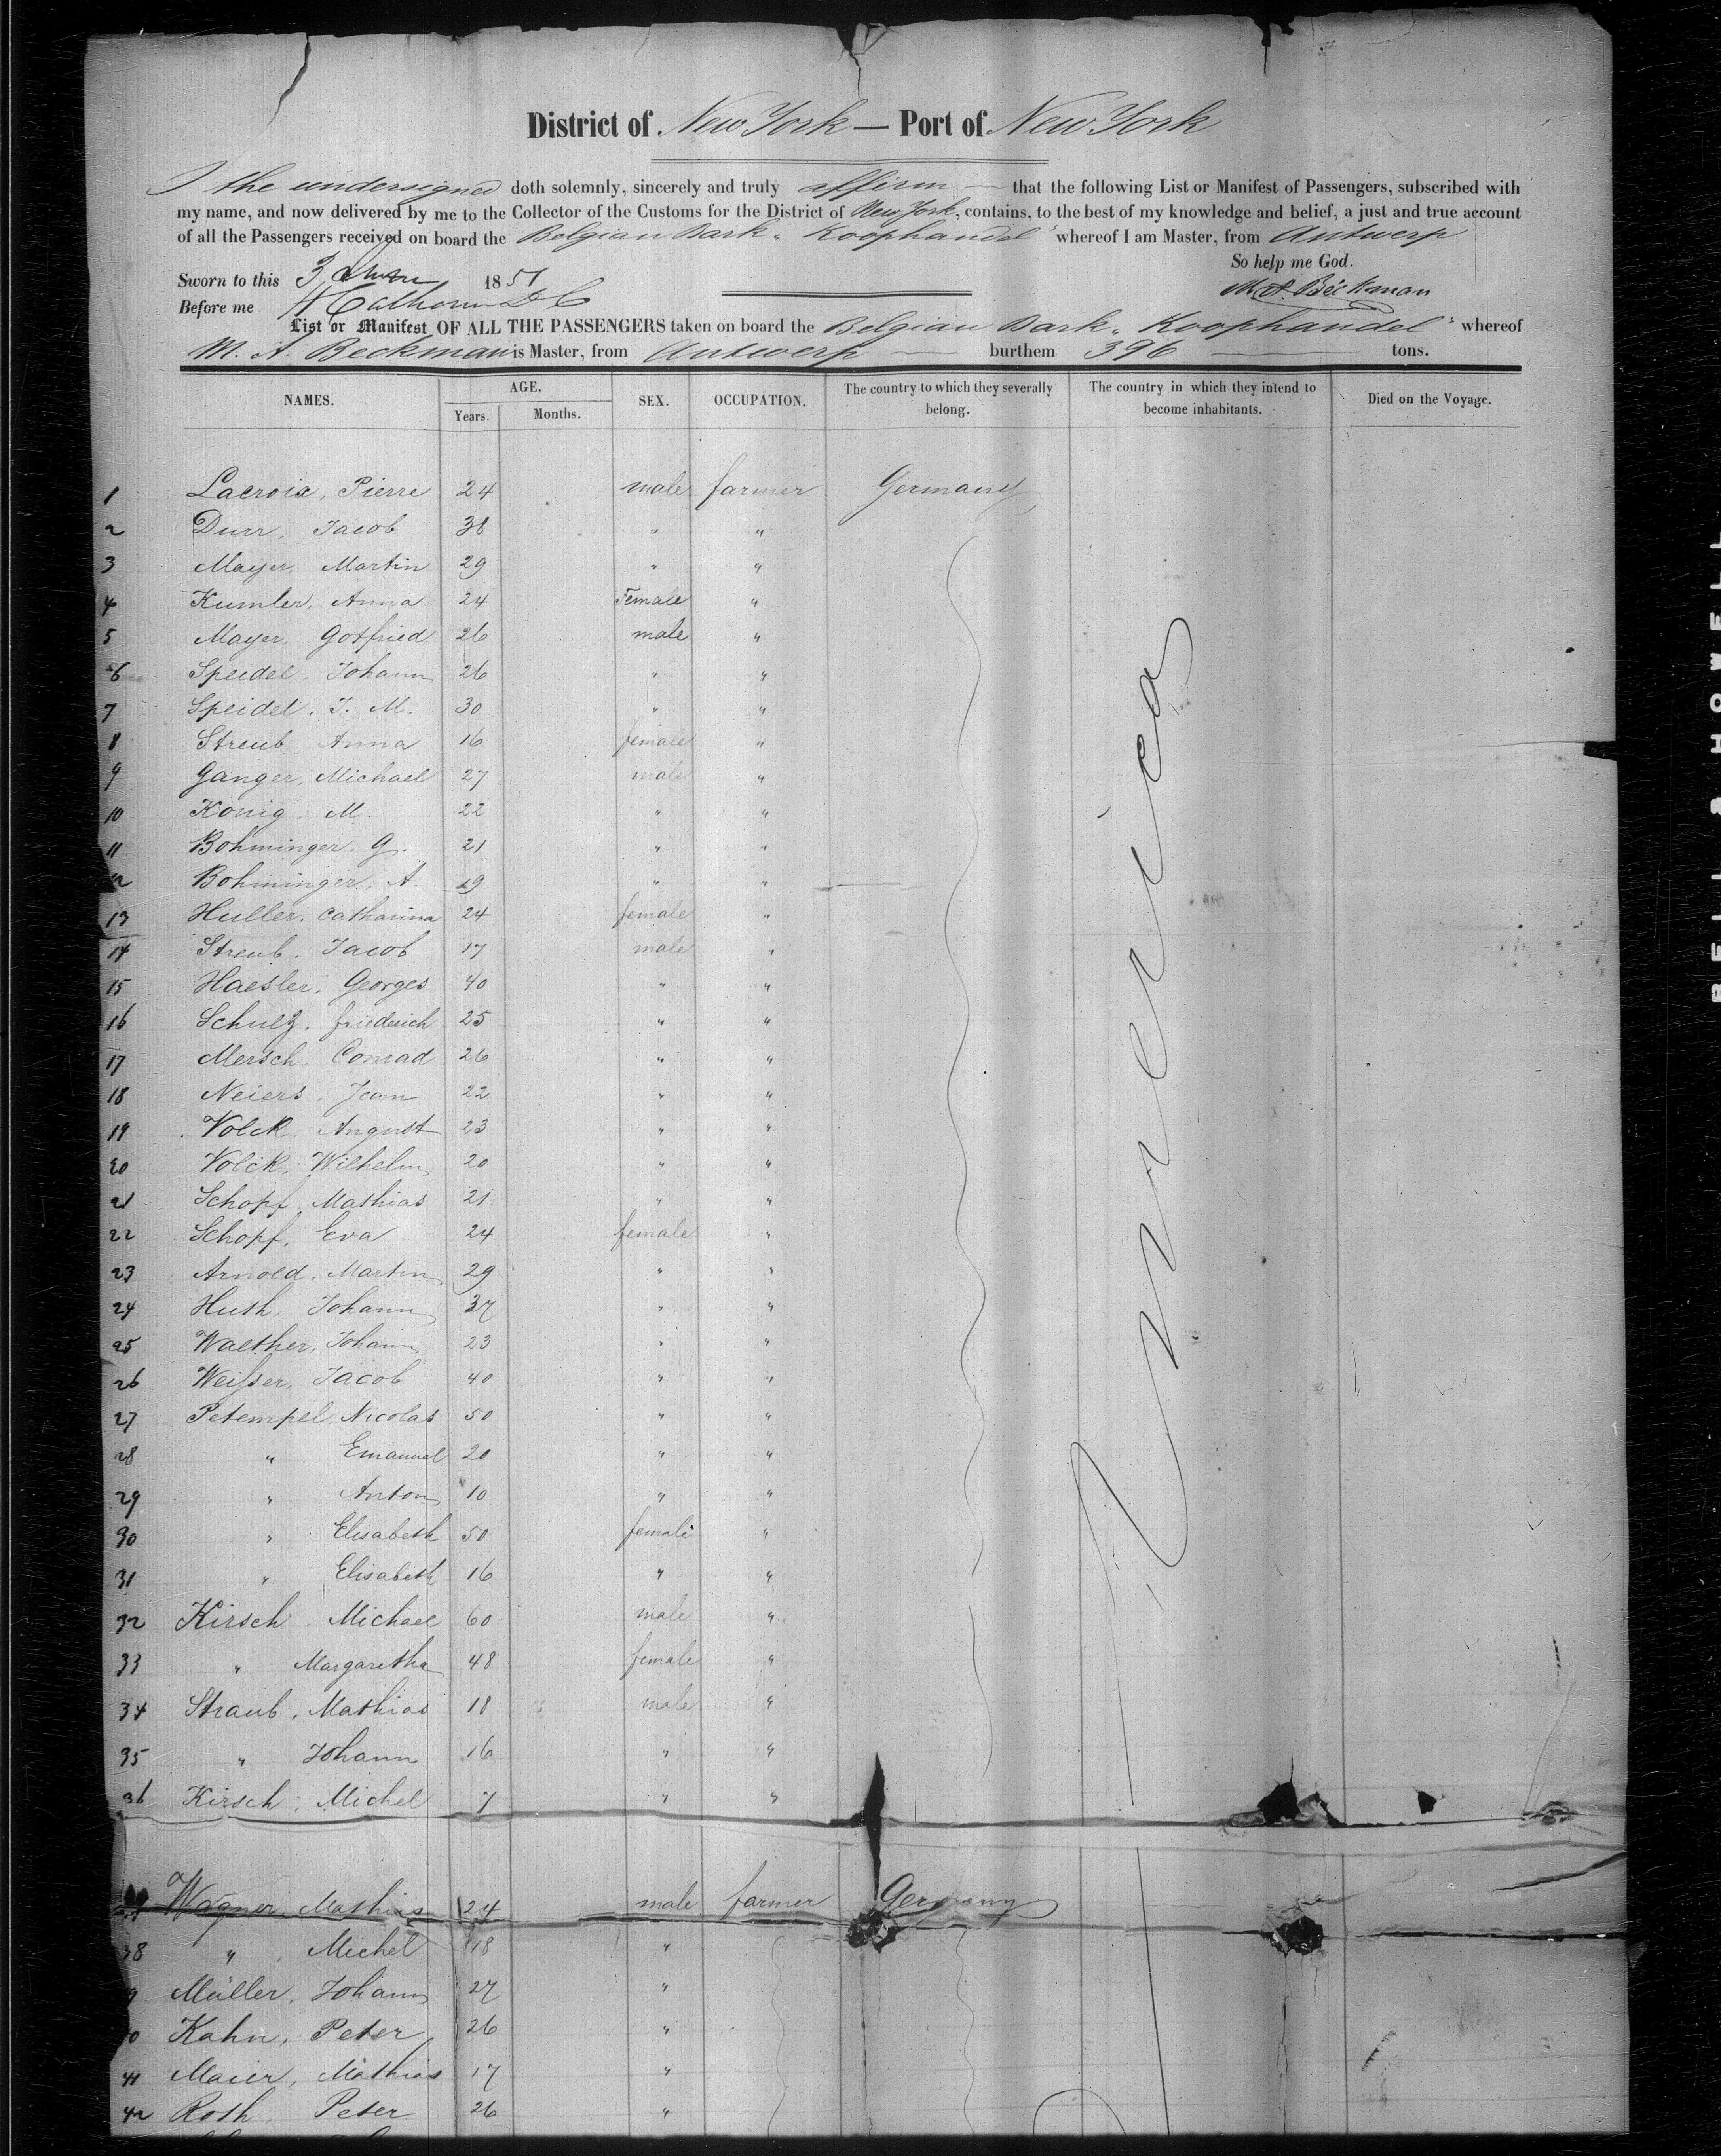 District of New York — Port of New York
I the undersigned doth solemnly, sincerely and truly affirm — that the following List or Manifest of Passengers, subscribed with
my name, and now delivered by me to the Collector of the Customs for the District of New York, contains, to the best of my knowledge and belief, a just and true account
of all the Passengers received on board the Belgian Bark "Koophandel" whereof I am Master, from Antwerp
So help me God.
Sworn to this 3 1851
M. A. Beckman
Before me
List or Manifest OF ALL THE PASSENGERS taken on board the Belgian Bark "Koophandel" whereof
M. A. Beckman is Master, from Antwerp — burthem 396 — tons.
NAMES. AGE. SEX. OCCUPATION. The country to which they severally belong. The country in which they intend to become inhabitants. Died on the Voyage.
Years. Months.
1 Lacroix, Pierre 24 male farmer Germany
2 Durr, Jacob 38 " "
3 Mayer, Martin 29 " "
4 Kumler, Anna 24 Female "
5 Mayer, Gotfried 26 male "
6 Speidel, Johann 26 " "
7 Speidel, J. M. 30 " "
8 Streub, Anna 16 female "
9 Ganger, Michael 27 male "
10 Konig, M. 22 " "
11 Bohminger, G. 21 " "
12 Bohminger, A. 19 " "
13 Huller, Catharina 24 female "
14 Streub, Jacob 17 male "
15 Haesler, Georges 40 " "
16 Schulz, friederich 25 " "
17 Mersch, Conrad 26 " "
18 Neiers, Jean 22 " "
19 Volck, August 23 " "
20 Volck, Wilhelm 20 " "
21 Schopf, Mathias 21 " "
22 Schopf, Eva 24 female "
23 Arnold, Martin 29 " "
24 Huth, Johann 37 " "
25 Walther, Johann 23 " "
26 Weisser, Jacob 40 " "
27 Petempel, Nicolas 50 " "
28 " Emanuel 20 " "
29 " Anton 10 " "
30 " Elisabeth 50 female "
31 " Elisabeth 16 " "
32 Kirsch, Michael 60 male "
33 " Margaretha 48 female "
34 Straub, Mathias 18 male "
35 " Johann 16 " "
36 Kirsch, Michel 7 " "
America
Wagner, Mathias 24 male farmer Germany
38 " Michel 18 "
9 Müller, Johann 27 "
0 Kahn, Peter 26 "
41 Maier, Mathias 17 "
42 Roth, Peter 26 "